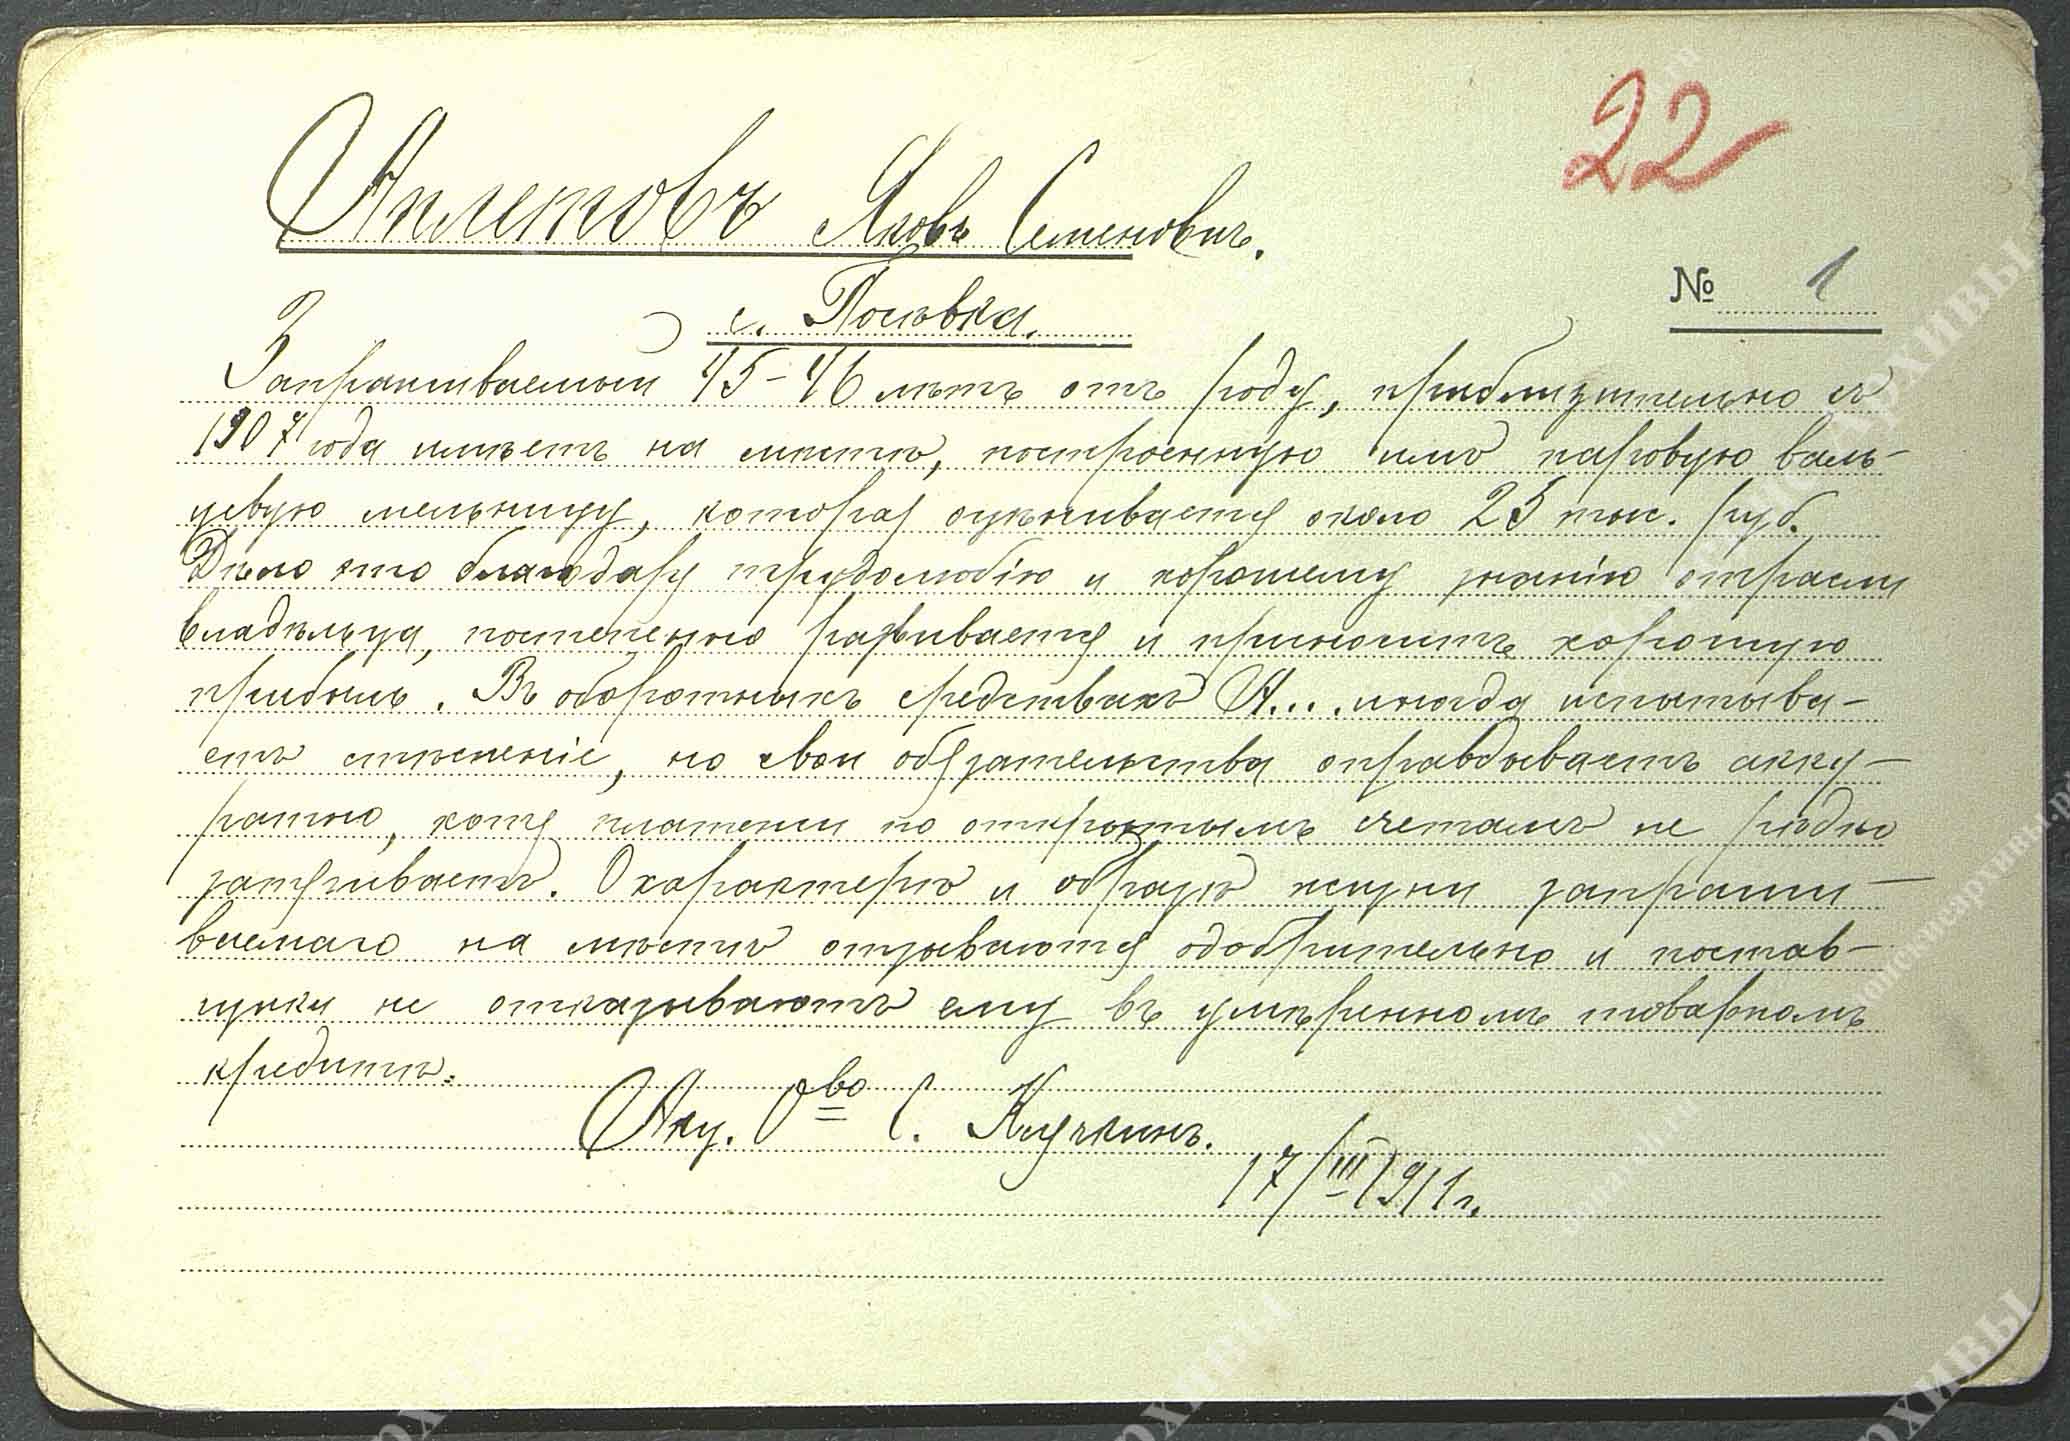 22
Аплетовъ Яковъ Семеновичъ.
№ 1
с. Посѣвка.
Запрашиваемый 45-46 лѣтъ отъ роду, приблизительно съ
1907 года имѣетъ на мѣстѣ, построенную имъ паровую валь-
цевую мельницу, которая оцѣнивается около 25 тыс. руб.
Дѣло это благодаря трудолюбію и хорошему знанію отрасли
владѣльца, постепенно развивается и приноситъ хорошую
прибыль. Въ оборотныхъ средствахъ А... иногда испытыва-
етъ стѣсненіе, но свои обязательства оправдываетъ акку-
ратно, хотя платежи по открытымъ счетамъ не рѣдко
затягиваетъ. О характерѣ и образѣ жизни запраши-
ваемаго на мѣстѣ отзываются одобрительно и постав-
щики не отказываютъ ему въ умѣренномъ товарномъ
кредитѣ.
Акц. О-во С. Клячкинъ.
17/III 1911 г.